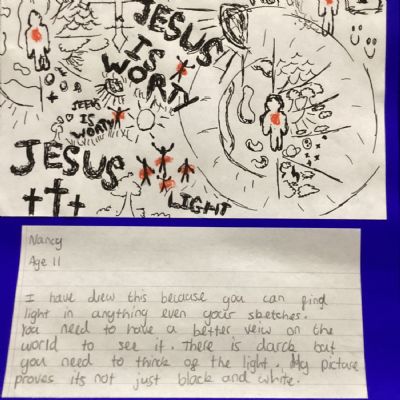 JESUS
IS
WORTY
JESUS
IS
WORTY
JESUS
LIGHT
Nancy
Age 11
I have drew this because you can find
light in anything even your sketches.
You need to have a better veiw on the
world to see it. There is darck but
you need to thinck of the light. My picture
proves its not just black and white.